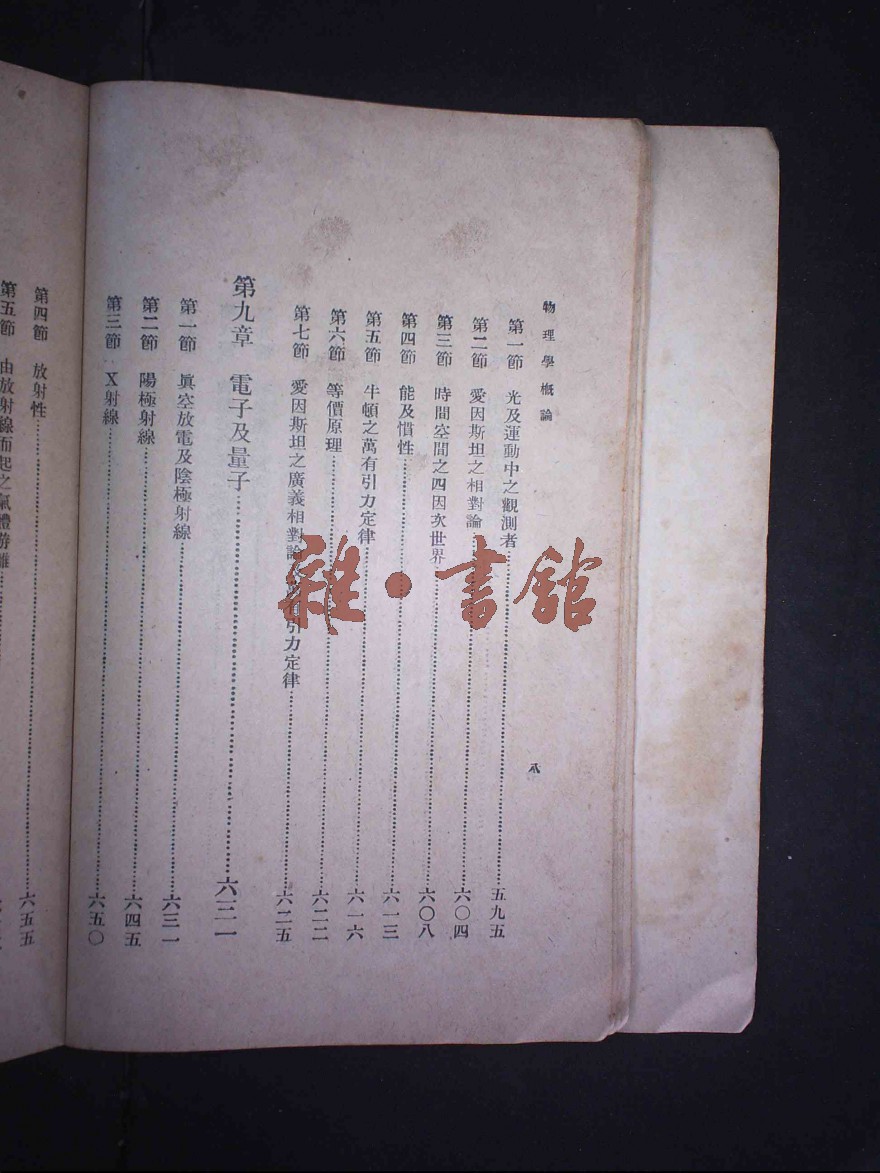 物理學概論
八
第一節 光及運動中之觀測者……五九五
第二節 愛因斯坦之相對論……六〇四
第三節 時間空間之四因次世界……六〇八
第四節 能及慣性……六一三
第五節 牛頓之萬有引力定律……六一六
第六節 等價原理……六二二
第七節 愛因斯坦之廣義相對論 引力定律……六二五
第九章 電子及量子……六三一
第一節 眞空放電及陰極射線……六三一
第二節 陽極射線……六四五
第三節 X射線……六五〇
第四節 放射性……六五五
第五節 由放射線而起之氣體游離
雜·書館